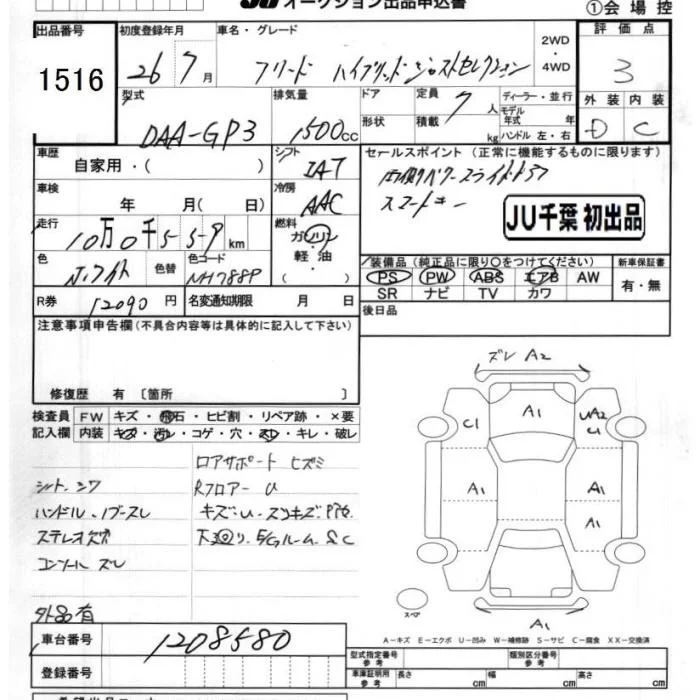 オークション出品申込書
①会場控
出品番号
1516
初度登録年月
26 7月
車名・グレード
フリード ハイブリッドジャストセレクション
2WD
・
4WD
評価点
3
型式
DAA-GP3
排気量
1500cc
ドア
形状
定員 7人
積載 kg
ディーラー・並行
モデル
年式 年
ハンドル 左・右
外装 内装
D C
車歴
自家用・( )
シフト
IAT
セールスポイント (正常に機能するものに限ります)
両側パワースライドドア
スマートキー
JU千葉 初出品
車検
年 月( 日)
冷房
AAC
走行
10万0千5 5 9 km
燃料
ガソリン
軽油・
( )
色
色替
色コード
NH788P
装備品 (純正品に限り〇をつけてください)
PS PW ABS エアB AW
SR ナビ TV カワ
新車保証書
有・無
R券 12090円
名変通知期限 月 日
後日品
注意事項申告欄(不具合内容等は具体的に記入して下さい)
修復歴 有 〔箇所 〕
検査員
記入欄
FW キズ・飛石・ヒビ割・リペア跡・×要
内装 キズ・汚レ・コゲ・穴・スレ・キレ・破レ
ロアサポート ヒズミ
シート、シワ
Rフロアー U
ハンドル、ノブースレ
ステレオ穴
下廻り、E/Gルーム SC
コンソール ズレ
外品有
ズレ A2
A1
C1
UA2
U
A1
A1
A1
A1
スペア
A-キズ E-エクボ U-凹み W-補修跡 S-サビ C-腐食 XX-交換済
車台番号
1208580
登録番号
型式指定番号
参考
類別区分番号
参考
車庫証明用
参考
長さ cm
幅 cm
高さ cm